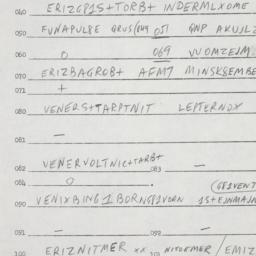 040 ERIZGP1S+TORB+ INDERMLXOME
050 FUNAPULBE QRUS/ 051 QNP AKUJLZ
060 O 069 VUOMZEJM
070 ERIZBAGROB+ AFM7 MINSK8EMBE
071 +
080 VENERS+TARPTNIT LEPTERNOX
081 —
082 VENERVOLTNIC+TARB+ 083 —
084 O
090 VENIXBING 1 BORNGP1VORN 1S+EJNMAJN
091 — 092 —
100 ERIZNITMER xx 101 NITOEMER/EMIZ